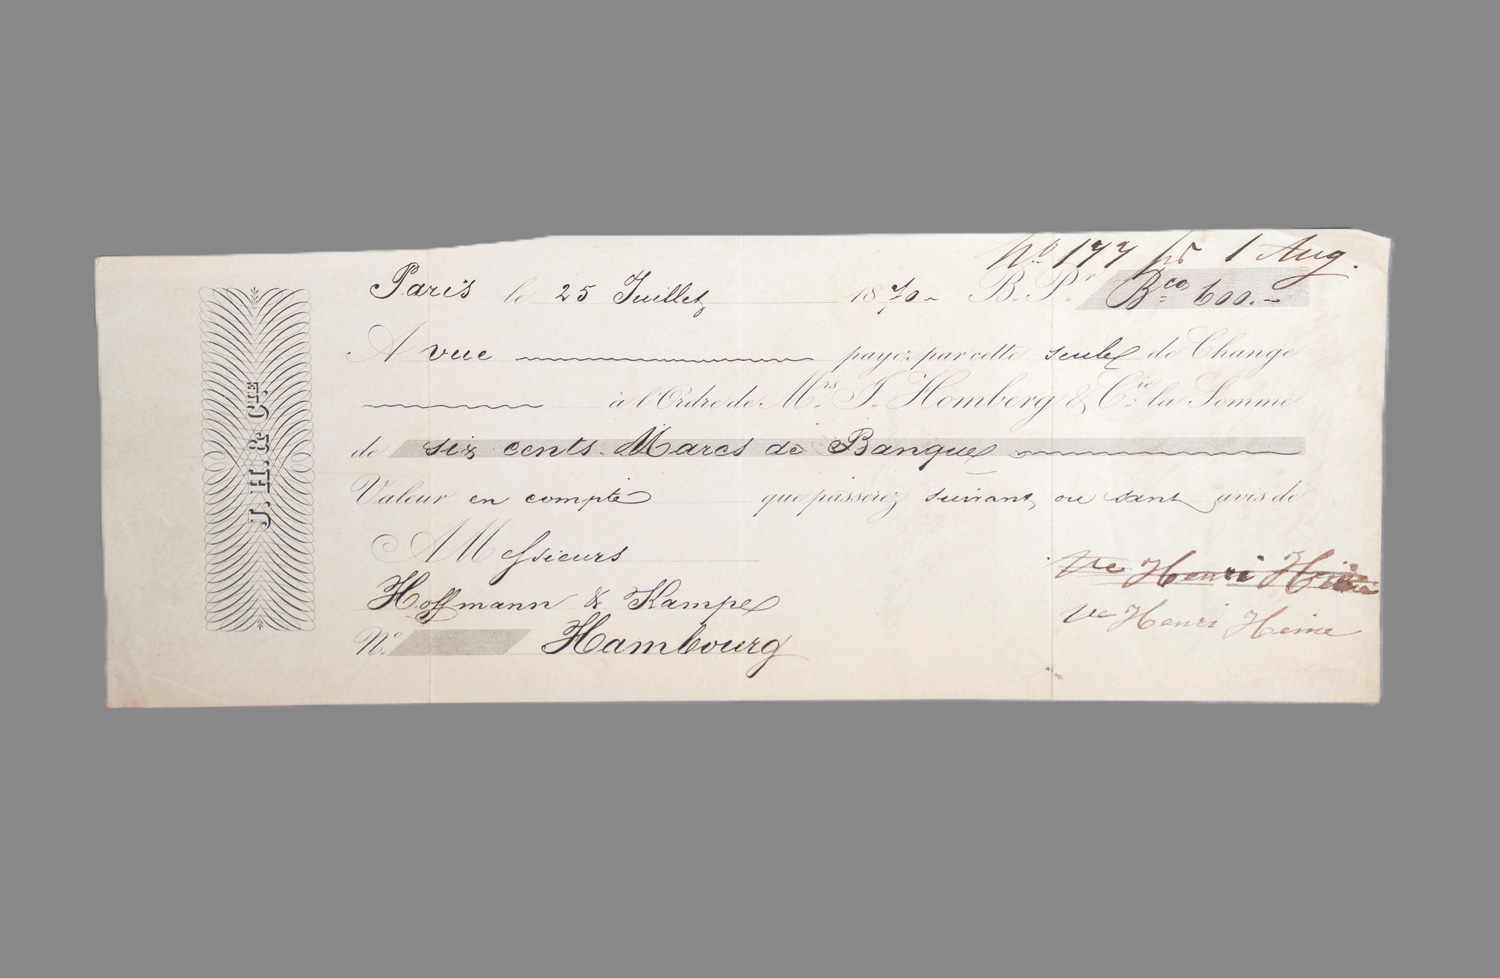 No 177 pr 1 Aug.
Paris le 25 Juillet 1870 - B. Pr. Bco 600.-
A vue payez par cette seule de Change
à l'Ordre de Mrs. J. Homberg & Cie. la Somme
de six cents Marcs de Banque
Valeur en compte que passerez suivant ou sans avis de
A Messieurs
Hoffmann & Kampe
No. Hambourg
Ve Henri Heine
Ve Henri Heine
J. H. & CIE.